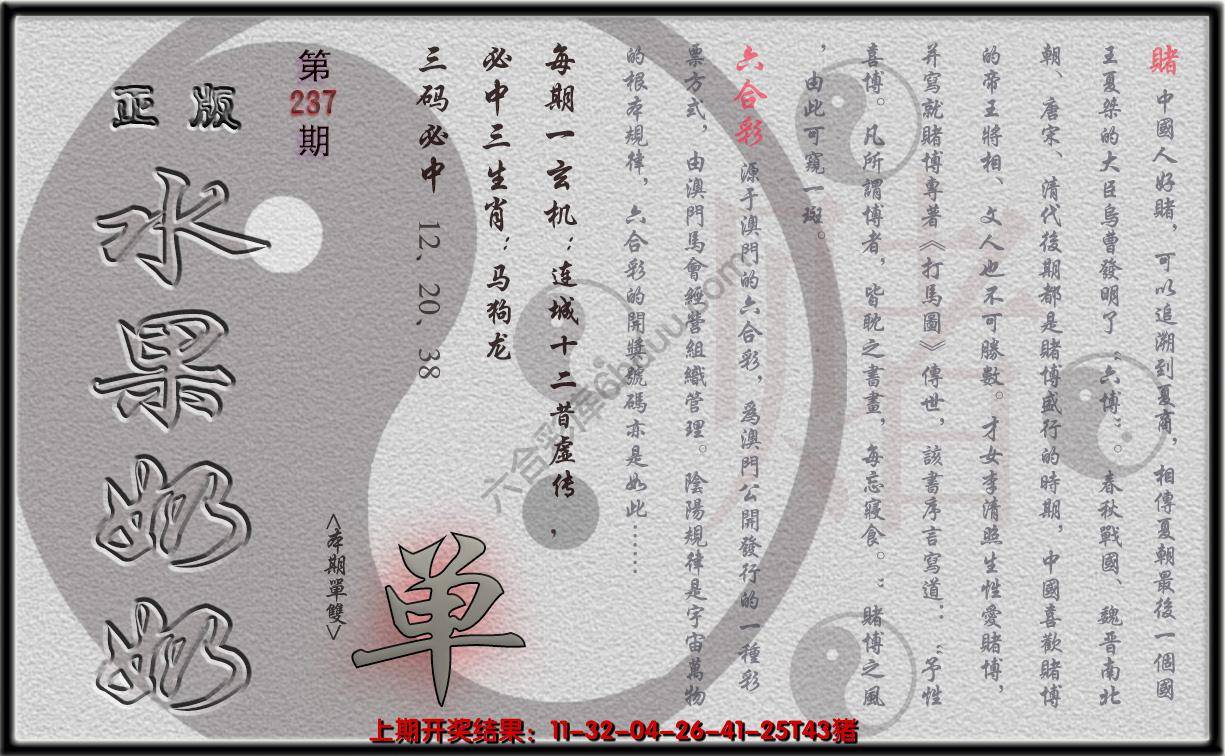 賭 中國人好賭，可以追溯到夏商，相傳夏朝最後一個國
王夏桀的大臣烏曹發明了“六博”。春秋戰國、魏晋南北
朝、唐宋、清代後期都是賭博盛行的時期，中國喜歡賭博
的帝王將相、文人也不可勝數。才女李清照生性愛賭博，
并寫就賭博專著《打馬圖》傳世，該書序言寫道：“予性
喜博。凡所謂博者，皆耽之晝晝，每忘寢食。”賭博之風
，由此可窺一斑。
六合彩 源于澳門的六合彩，爲澳門公開發行的一種彩
票方式，由澳門馬會經營組織管理。陰陽規律是宇宙萬物
的根本規律，六合彩的開獎號碼亦是如此……
每期一玄机：连城十二昔虚传，
必中三生肖：马狗龙
三码必中 12、20、38
第
237
期
正版
水果奶奶
<本期單雙>
单
六合彩库6huuu.com
賭
上期开奖结果：11-32-04-26-41-25T43猪